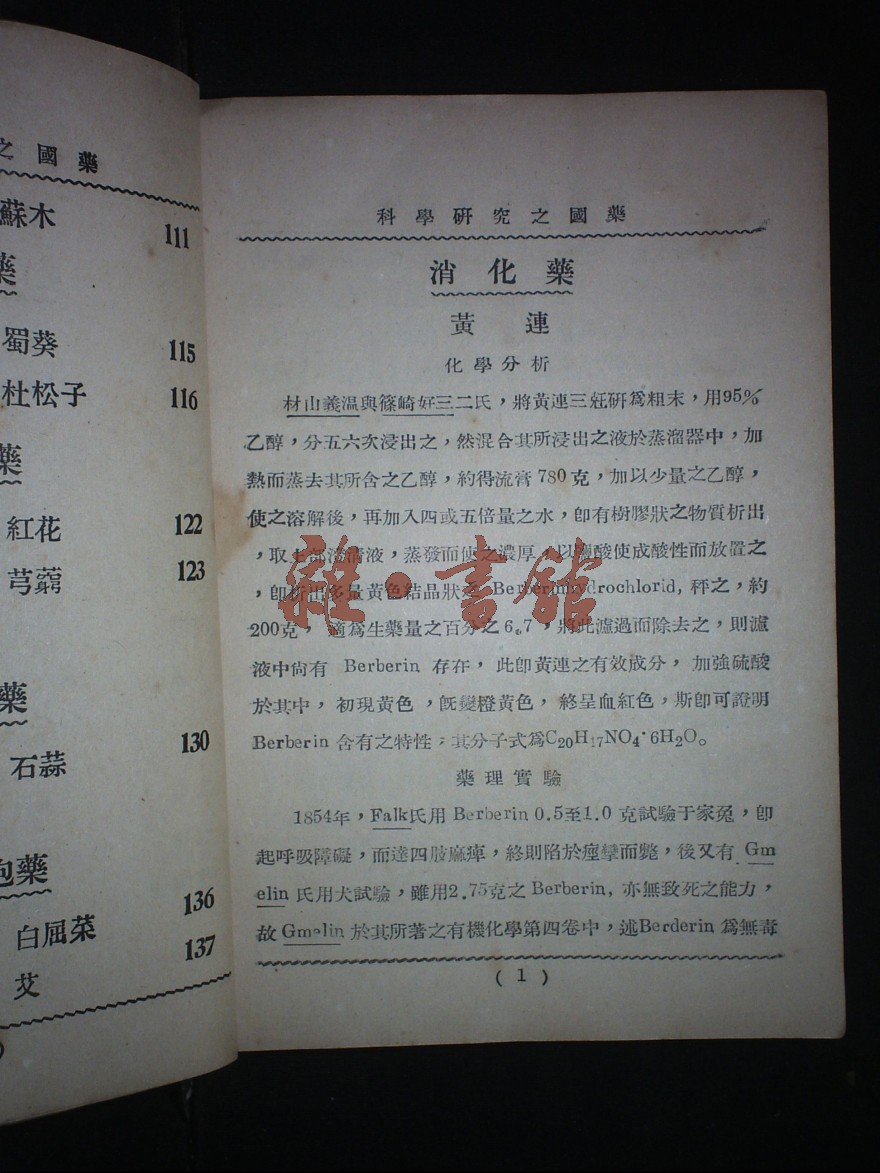 之國藥
蘇木 111
藥
蜀葵 115
杜松子 116
藥
紅花 122
芎藭 123
藥
石蒜 130
泡藥
白屈菜 136
艾 137
科學研究之國藥
消化藥
黃連
化學分析
材山義温與篠崎好三二氏，將黃連三瓩研爲粗末，用95%
乙醇，分五六次浸出之，然混合其所浸出之液於蒸溜器中，加
熱而蒸去其所含之乙醇，約得流膏780克，加以少量之乙醇，
使之溶解後，再加入四或五倍量之水，卽有樹膠狀之物質析出
，取上部澄清液，蒸發而使之濃厚，以鹽酸使成酸性而放置之
，卽析出多量黃色結晶狀之 Berberinhydrochlorid, 秤之，約
200克，適爲生藥量之百分之6.7，將此濾過而除去之，則濾
液中尙有 Berberin 存在，此卽黃連之有效成分，加強硫酸
於其中，初現黃色，旣變橙黃色，終呈血紅色，斯卽可證明
Berberin 含有之特性；其分子式爲C20H17NO4·6H2O。
藥理實驗
1854年，Falk氏用 Berberin 0.5至1.0 克試驗于家兔，卽
起呼吸障礙，而達四肢麻痺，終則陷於痙攣而斃，後又有 Gm
elin 氏用犬試驗，雖用2.75克之 Berberin, 亦無致死之能力，
故 Gmelin 於其所著之有機化學第四卷中，述Berderin 爲無毒
(1)
雜·書館